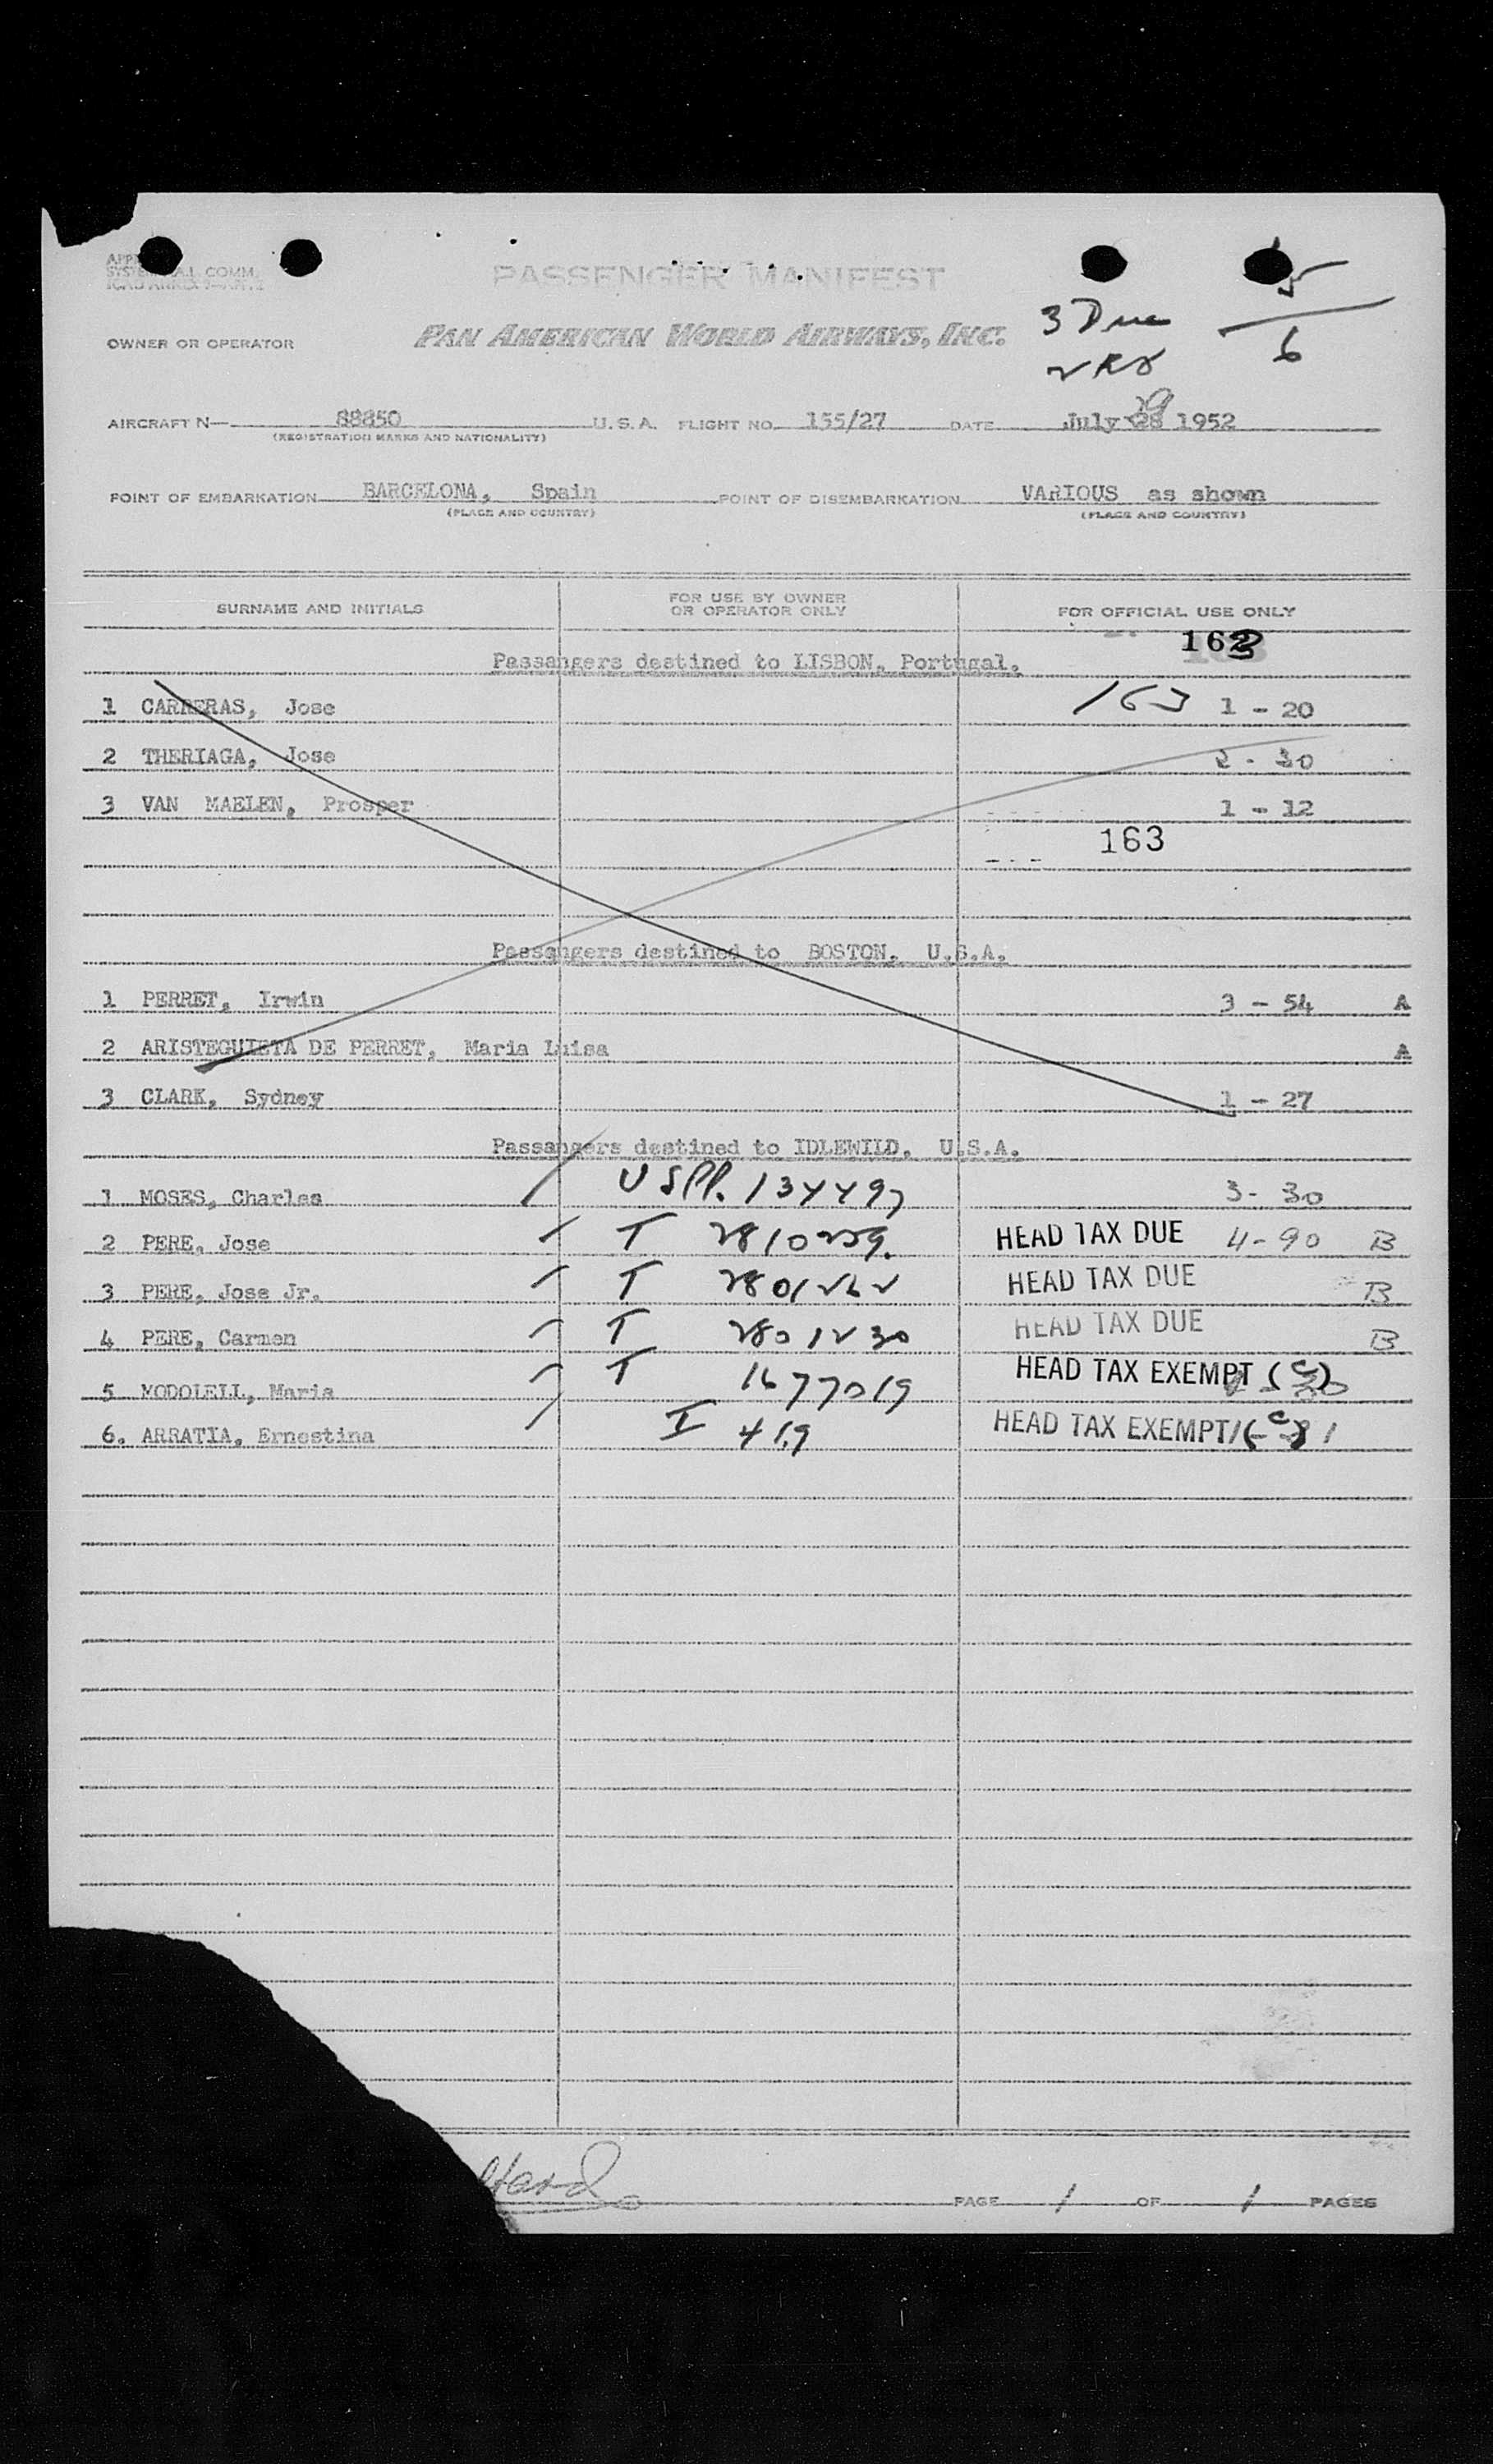 PASSENGER MANIFEST
OWNER OR OPERATOR PAN AMERICAN WORLD AIRWAYS, INC.
3 Due
5
6
AIRCRAFT N— 88850 U.S.A. FLIGHT NO. 155/27 DATE July 28 29 1952
(REGISTRATION MARKS AND NATIONALITY)
POINT OF EMBARKATION BARCELONA, Spain POINT OF DISEMBARKATION VARIOUS as shown
(PLACE AND COUNTRY) (PLACE AND COUNTRY)
SURNAME AND INITIALS FOR USE BY OWNER OR OPERATOR ONLY FOR OFFICIAL USE ONLY
163
Passangers destined to LISBON, Portugal.
1 CARRERAS, Jose 163 1 - 20
2 THERIAGA, Jose 2 - 30
3 VAN MAELEN, Prosper 1 - 12
163
Passangers destined to BOSTON, U.S.A.
1 PERRET, Irwin 3 - 54 A
2 ARISTEGUIETA DE PERRET, Maria Luisa A
3 CLARK, Sydney 1 - 27
Passangers destined to IDLEWILD, U.S.A.
1 MOSES, Charles USPP. 134497 3 - 30
2 PERE, Jose T 2810259. HEAD TAX DUE 4-90 B
3 PERE, Jose Jr. T 2801262 HEAD TAX DUE B
4 PERE, Carmen T 2801230 HEAD TAX DUE B
5 MODOLELL, Maria T 1677019 HEAD TAX EXEMPT (c)
6. ARRATIA, Ernestina I 419 HEAD TAX EXEMPT (c)
PAGE 1 OF 1 PAGES